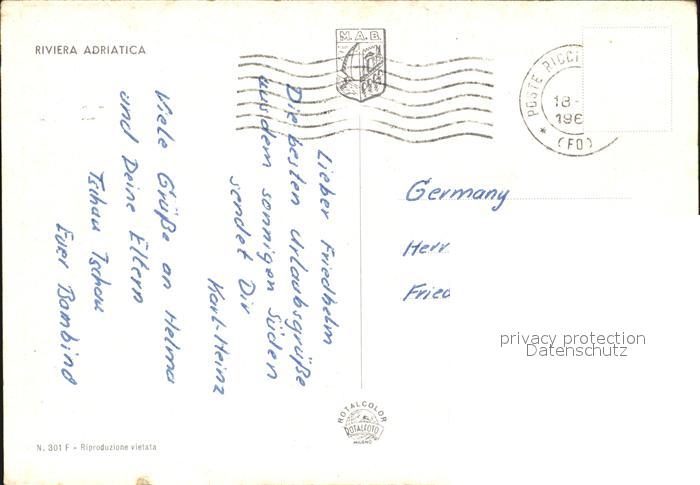 RIVIERA ADRIATICA
M.A.B.
POSTE RICCI
18-
196
(FO)
Lieber Friedhelm
Die besten Urlaubsgrüße
aus dem sonnigen Süden
sendet Dir
Karl-Heinz
Viele Grüße an Helma
und Deine Eltern
Tschau Tschau
Euer Bambino
Germany
Herr
Fried
privacy protection
Datenschutz
ROTALCOLOR
ROTALFOTO
MILANO
N. 301 F - Riproduzione vietata